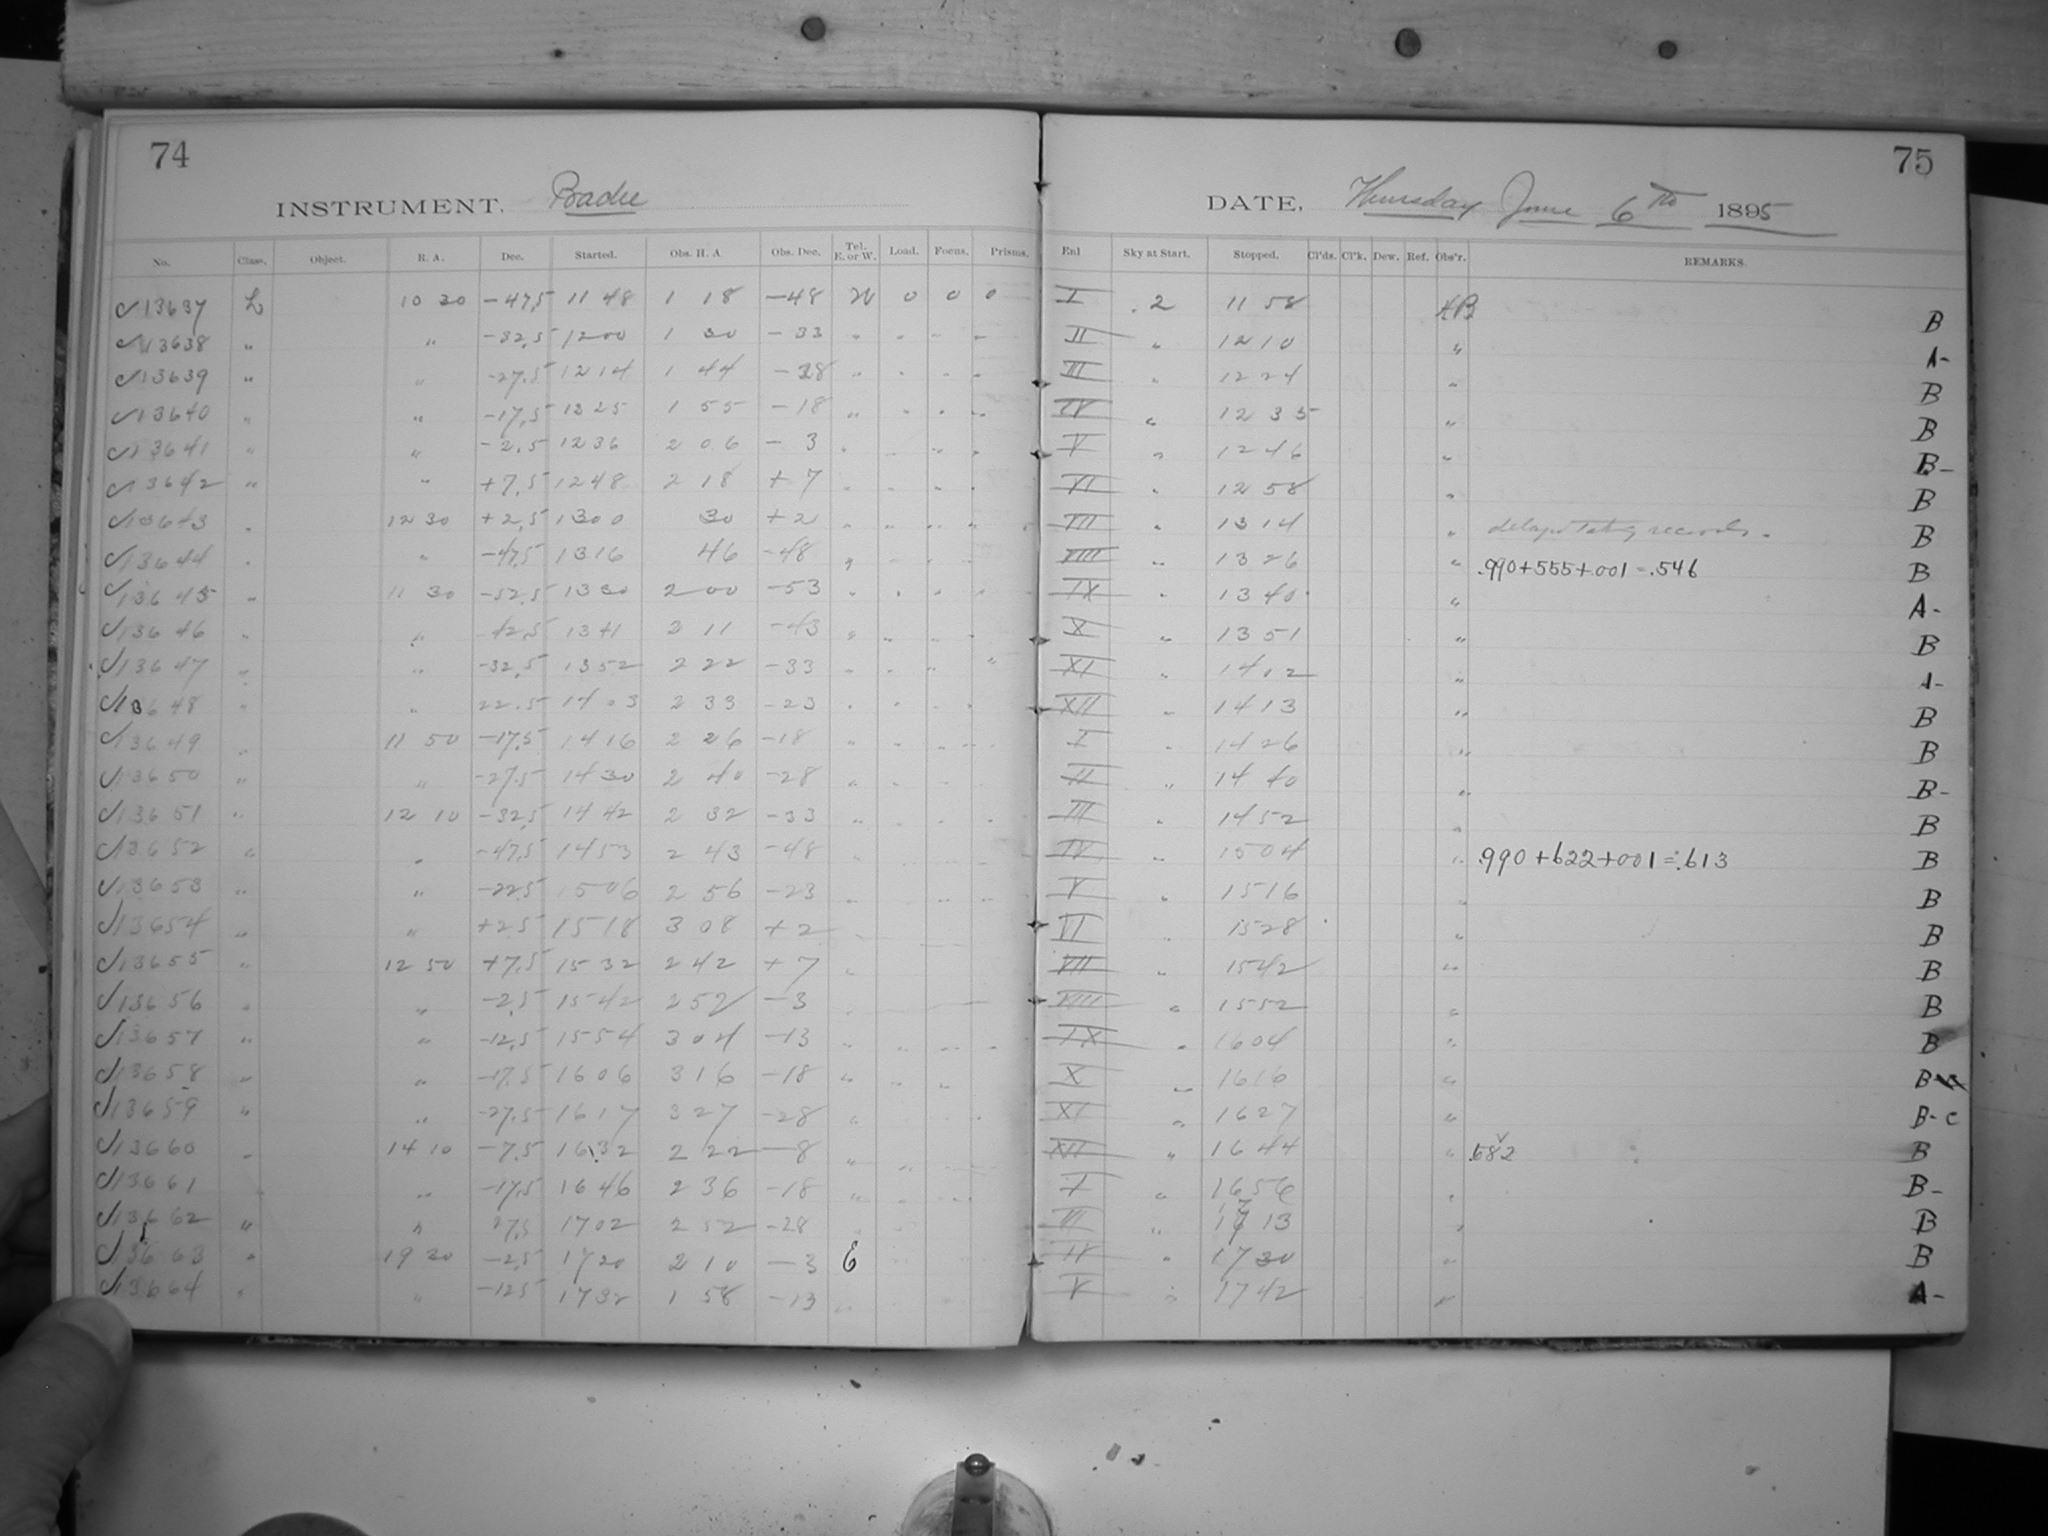 74
INSTRUMENT. Bache
No. Class. Object. R. A. Dec. Started. Obs. H. A. Obs. Dec. Tel. E. or W. Load. Focus. Prisms.
13637 L 10 30 -47.5 11 48 1 18 -48 W 0 0 0
13638 " " -32.5 12 00 1 30 -33 " " " "
13639 " " -27.5 12 14 1 44 -28 " " " "
13640 " " -17.5 12 25 1 55 -18 " " " "
13641 " " -2.5 12 36 2 06 -3 " " " "
13642 " " +7.5 12 48 2 18 +7 " " " "
13643 " 12 30 +2.5 13 00 30 +2 " " " "
13644 " " -47.5 13 16 46 -48 "
13645 " 11 30 -52.5 13 30 2 00 -53 " " " "
13646 " " -42.5 13 41 2 11 -43 " " " "
13647 " " -32.5 13 52 2 22 -33 " " " "
13648 " " 22.5 14 03 2 33 -23 " " " "
13649 " 11 50 -17.5 14 16 2 26 -18 " " " "
13650 " " -27.5 14 30 2 40 -28 " " " "
13651 " 12 10 -32.5 14 42 2 32 -33 " " " "
13652 " " -47.5 14 53 2 43 -48 " " " "
13653 " " -22.5 15 06 2 56 -23 " " " "
13654 " " +2.5 15 18 3 08 +2
13655 " 12 50 +7.5 15 32 2 42 +7 "
13656 " " -2.5 15 42 2 52 -3
13657 " " -12.5 15 54 3 04 -13 " " " "
13658 " " -17.5 16 06 3 16 -18 " " "
13659 " " -27.5 16 17 3 27 -28 "
13660 " 14 10 -7.5 16 32 2 22 -8 " "
13661 " -17.5 16 46 2 36 -18 " " "
13662 " " 27.5 17 02 2 52 -28
13663 " 19 30 -2.5 17 20 2 10 -3 E
13664 " " -12.5 17 32 1 58 -13 "
75
DATE, Thursday June 6th 1895
Enl Sky at Start. Stopped. Cl'ds. Cl'k. Dew. Ref. Obs'r. REMARKS.
I 2 11 58 B
II " 12 10 " A-
III " 12 24 " B
IV " 12 35 " B
V " 12 46 " B-
VI " 12 58 " B
VII " 13 14 " records. B
VIII " 13 26 " .990+555+.001=.546 B
IX " 13 40 " A-
X " 13 51 " B
XI " 14 02 " A-
XII " 14 13 " B
I " 14 26 " B
II " 14 40 " B-
III " 14 52 " B
IV " 15 04 " .990+622+001=.613 B
V " 15 16 " B
VI " 15 28 " B
VII " 15 42 " B
VIII " 15 52 " B
IX " 16 04 " B
X " 16 16 " B-
XI " 16 27 " B-C
XII " 16 44 " .582 B
I " 16 56 " B-
III " 17 13 " B
IV " 17 30 " B
V " 17 42 " A-